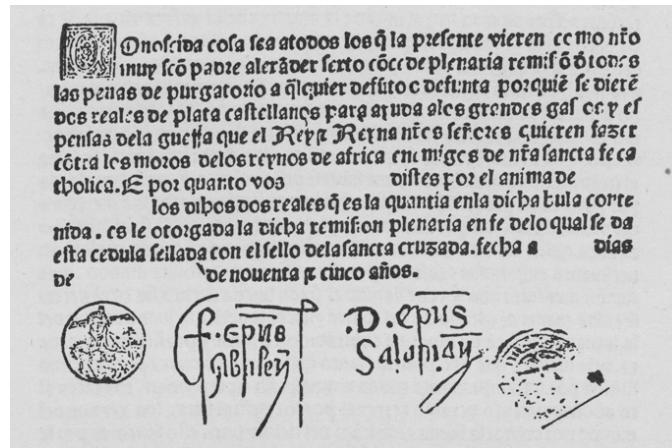 COnoscida cosa sea atodos los q̃ la presente vieren como nr̃o
muy scõ padre alexãder sexto cõcede plenaria remisiõ õ todas
las penas de purgatorio a q̃lquier defũto o defunta por quiẽ se dierẽ
dos reales de plata castellanos para ayuda alos grandes gastos y es
pensas dela guerra que el Rey ⁊ Reyna nr̃os señores quieren fazer
cõtra los moros delos reynos de africa enemigos de nr̃a sancta fe ca
tholica. E por quanto vos distes por el anima de
los dichos dos reales q̃ es la quantia enla dicha bula conte
nida. es le otorgada la dicha remision plenaria en fe delo qual se da
esta cedula sellada con el sello dela sancta cruzada. fecha a dias
de de noventa ⁊ cinco años.
f. epus D. epus